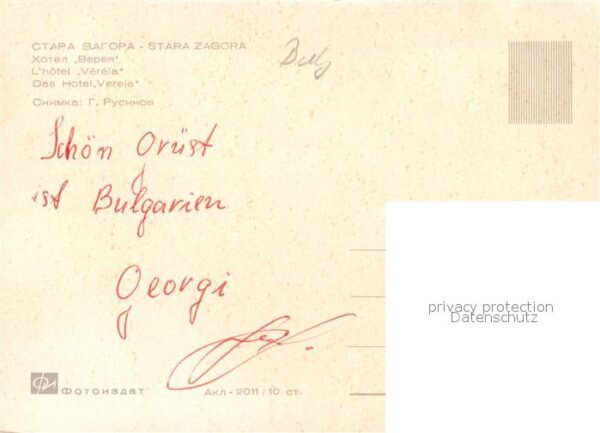 СТАРА ЗАГОРА - STARA ZAGORA
Хотел „Верея"
L'hôtel „Véréïa"
Das Hotel „Vereja"
Снимка: Г. Русинов
Bulg
Schön Grüst
ist Bulgarien
Georgi
privacy protection
Datenschutz
Фотоиздат
Акл - 2011 / 10 ст.